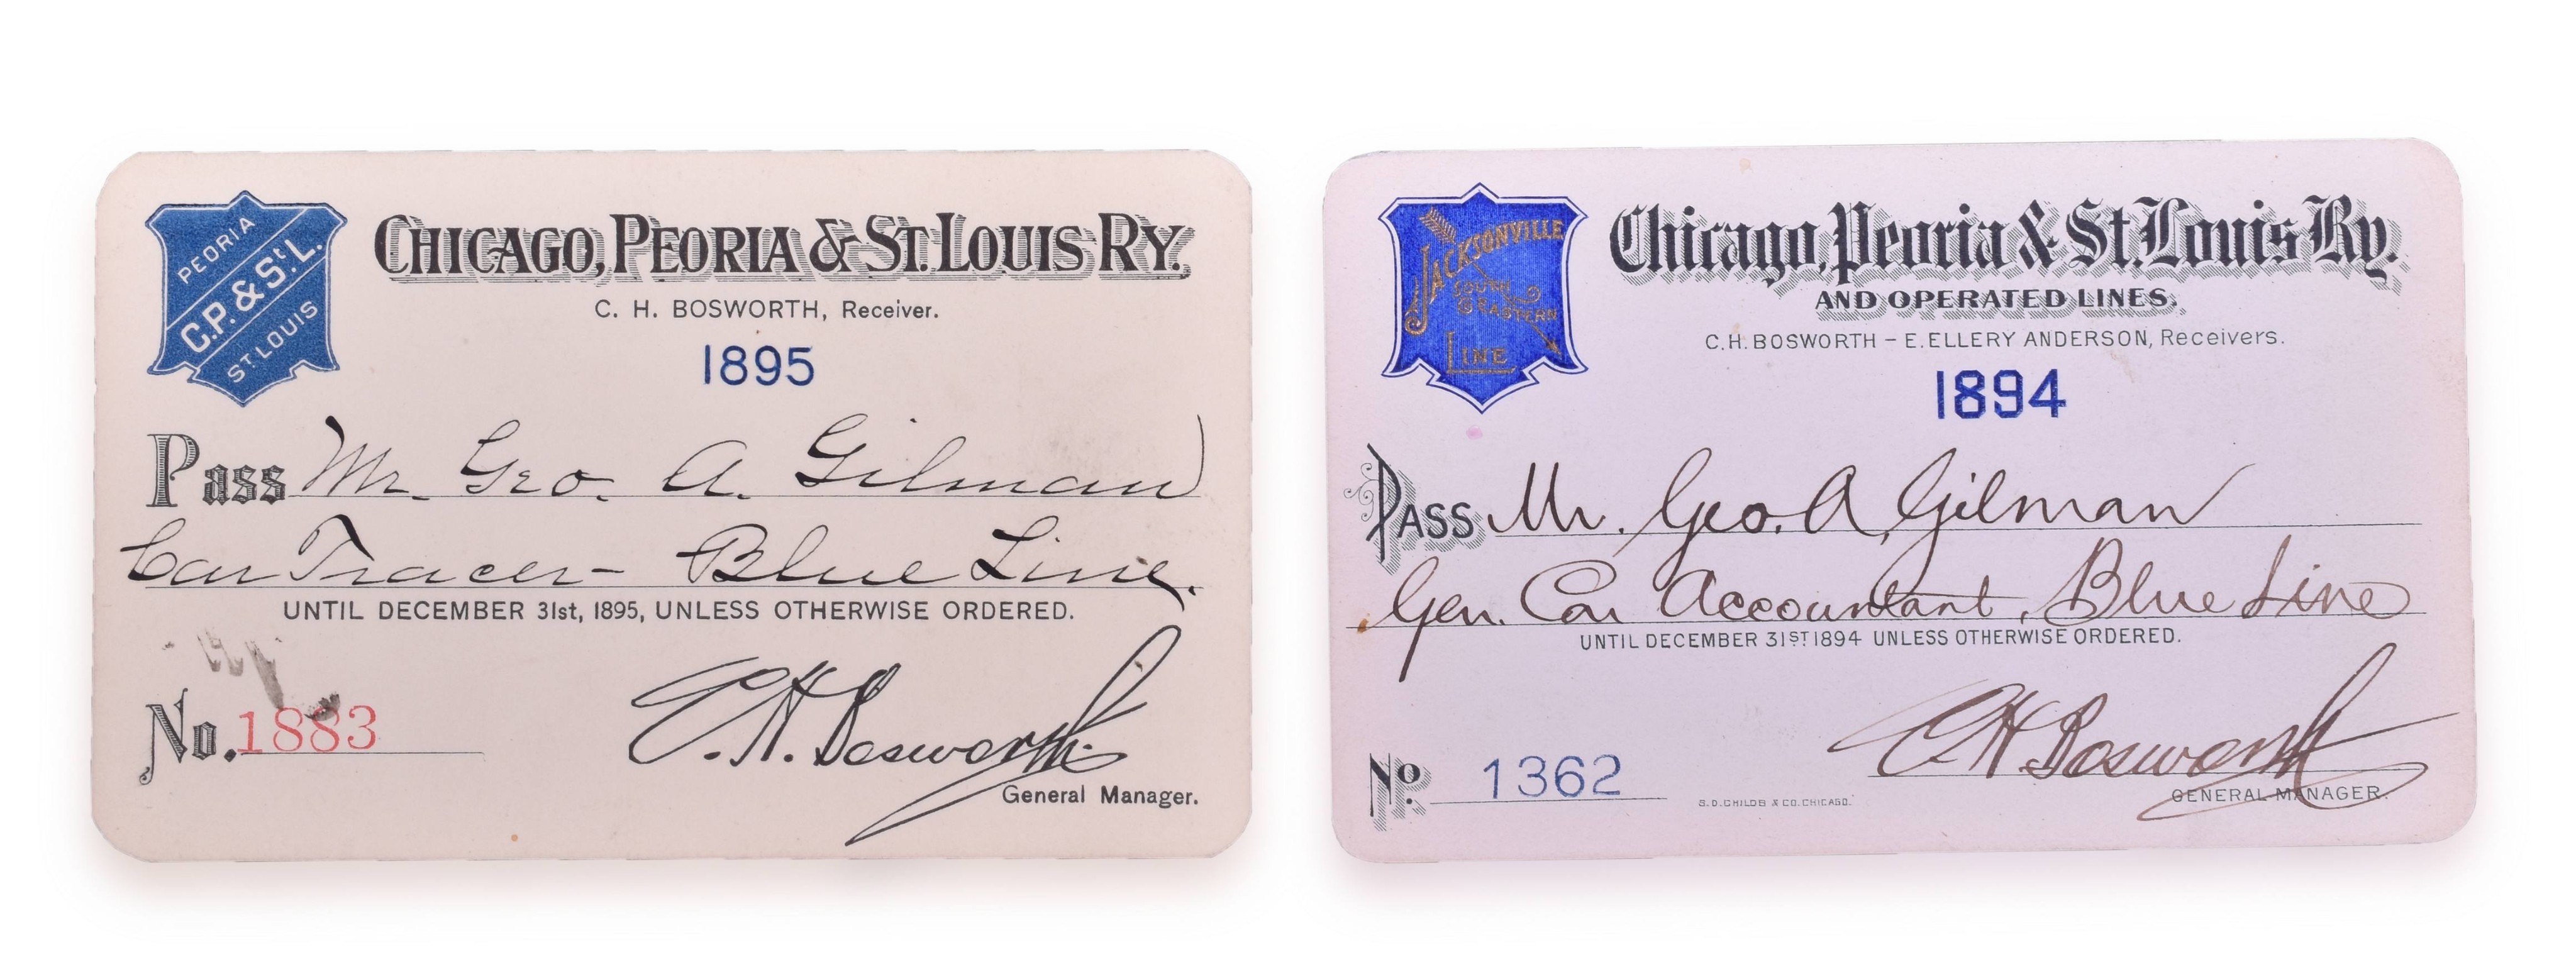 PEORIA
C.P. & St. L.
ST LOUIS
CHICAGO, PEORIA & ST. LOUIS RY.
C. H. BOSWORTH, Receiver.
1895
Pass Mr. Geo. A. Gilman
Car Tracer - Blue Line.
UNTIL DECEMBER 31st, 1895, UNLESS OTHERWISE ORDERED.
No. 1883
C. H. Bosworth
General Manager.
JACKSONVILLE
SOUTH
EASTERN
LINE
Chicago, Peoria & St. Louis Ry.
AND OPERATED LINES.
C.H. BOSWORTH – E. ELLERY ANDERSON, Receivers.
1894
PASS Mr. Geo. A. Gilman
Gen. Car Accountant, Blue Line
UNTIL DECEMBER 31ST 1894 UNLESS OTHERWISE ORDERED.
No. 1362
S.D. CHILDS & CO. CHICAGO.
C H Bosworth
GENERAL MANAGER.